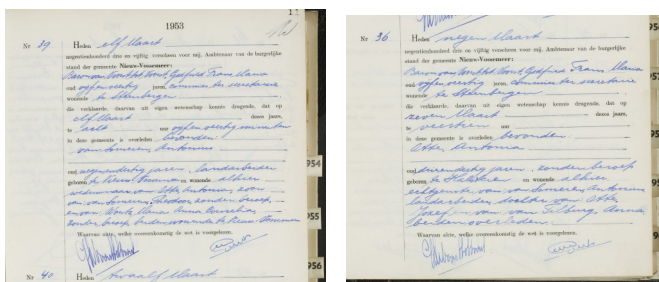 1953
Nr 39 Heden elf Maart
negentienhonderd drie en vijftig verscheen voor mij, Ambtenaar van de burgerlijke
stand der gemeente Nieuw-Vossemeer:
Frans Maria
oud vijf en veertig jaren,
wonende te Steenbergen
die verklaarde, daarvan uit eigen wetenschap kennis dragende, dat op
elf Maart dezes jaars,
te acht uur vijf en veertig minuten
in deze gemeente is overleden bevonden
van Someren, Antonius
oud negen en dertig jaren, landarbeider
geboren te en wonende alhier
weduwnaar van Otte, Antonia, zoon
van van Someren, zonder beroep,
en van Maria Anna Cornelia,
zonder beroep, beiden wonende te
Waarvan akte, welke overeenkomstig de wet is voorgelezen.
Nr 40 Heden twaalf Maart
954
955
956
Nr 36 Heden negen Maart
negentienhonderd drie en vijftig verscheen voor mij, Ambtenaar van de burgerlijke
stand der gemeente Nieuw-Vossemeer:
Frans Maria
oud vijf en veertig jaren,
wonende te Steenbergen
die verklaarde, daarvan uit eigen wetenschap kennis dragende, dat op
zeven Maart dezes jaars,
te veertien uur
in deze gemeente is overleden bevonden
Otte, Antonia
oud drie en dertig jaren, zonder beroep
geboren te en wonende alhier
echtgenote van van Someren, Antonius
landarbeider, dochter van Otte
Jozef en van van Tilburg,
beiden overleden
Waarvan akte, welke overeenkomstig de wet is voorgelezen.